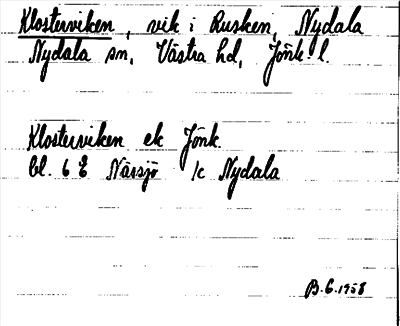 Klosterviken, vik i Rusken, Nydala
Nydala sn, Västra hd, Jönk. l.
Klosterviken ek Jönk.
bl. 6 E Nässjö /c Nydala
B.G. 1958